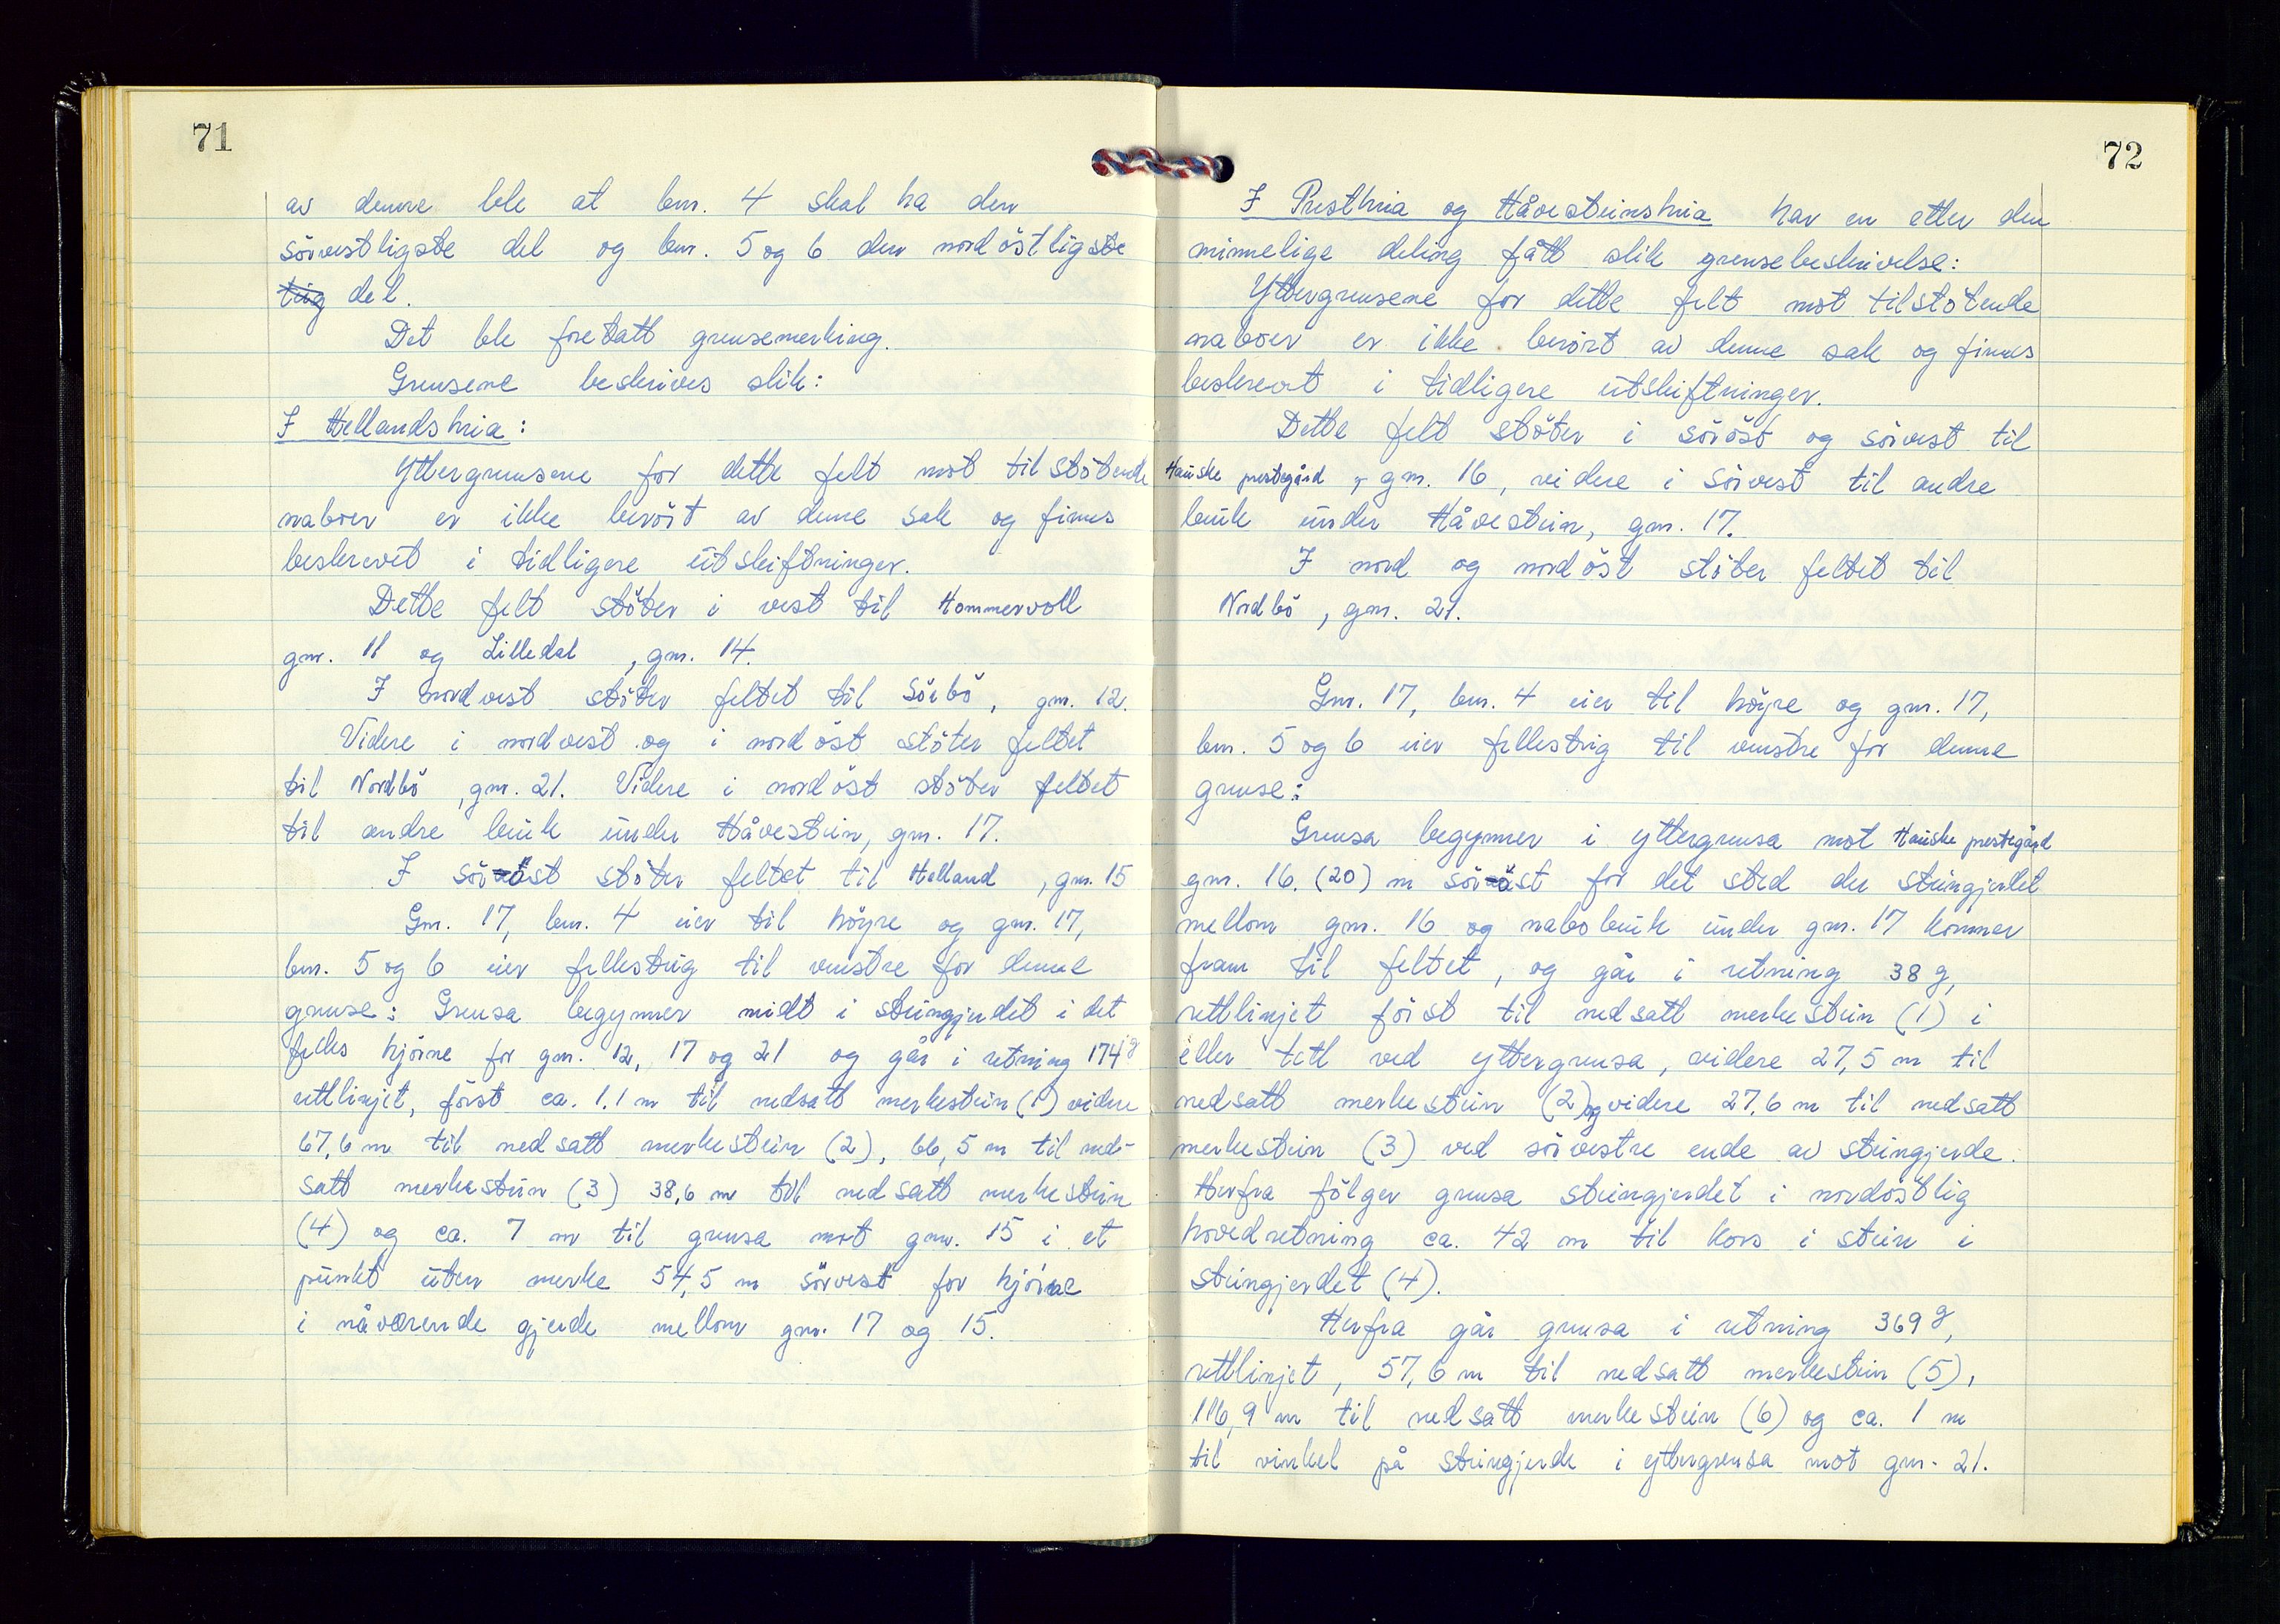 71
av denne ble at bnr. 4 skal ha den
sörvestligste del og bnr. 5 og 6 den nordöstligste
del.
Det ble foretatt grensemerking.
Grensene beskrives slik:
I Hellandskria:
Yttergrensene for dette felt mot tilstötende
naboer er ikke berört av denne sak og finnes
beskrevet i tidligere utskiftninger.
Dette felt stöter i vest til Hommervoll
gnr. 11 og Lilledal , gnr. 14.
I nordvest stöter feltet til Sörbö, gnr. 12.
Videre i nordvest og i nordöst stöter feltet
til Nordbö , gnr. 21. Videre i nordöst stöter feltet
til andre bruk under Håvestein, gnr. 17.
I söröst stöter feltet til Helland , gnr. 15
Gnr. 17, bnr. 4 eier til höyre og gnr. 17,
bnr. 5 og 6 eier fellestrig til venstre for denne
grense: Grensa begynner midt i steingjerdet i det
felles hjörne for gnr. 12, 17 og 21 og går i retning 174 g
rettlinjet, först ca. 1.1 m til nedsatt merkestein (1) videre
67,6 m til nedsatt merkestein (2), 66,5 m til ned-
satt merkestein (3) 38,6 m til nedsatt merkestein
(4) og ca. 7 m til grensa mot gnr. 15 i et
punkt uten merke 54,5 m sörvest for hjörne
i nåværende gjerde mellom gnr. 17 og 15.
72
I Prestkria og Håvesteinskria har en etter den
minnelige deling fått slik grensebeskrivelse:
Yttergrensene for dette felt mot tilstötende
naboer er ikke berört av denne sak og finnes
beskrevet i tidligere utskiftninger.
Dette felt stöter i söröst og sörvest til
Hauske prestegård , gnr. 16, videre i sörvest til andre
bruk under Håvestein, gnr. 17.
I nord og nordöst stöter feltet til
Nordbö , gnr. 21.
Gnr. 17, bnr. 4 eier til höyre og gnr. 17,
bnr. 5 og 6 eier fellestrig til venstre for denne
grense:
Grensa begynner i yttergrensa mot Hauske prestegård
gnr. 16. (20) m söröst for det sted der steingjerdet
mellom gnr. 16 og nabobruk under gnr. 17 kommer
fram til feltet, og går i retning 38 g,
rettlinjet först til nedsatt merkestein (1) i
eller tett ved yttergrensa, videre 27,5 m til
nedsatt merkestein (2) og videre 27,6 m til nedsatt
merkestein (3) ved sörvestre ende av steingjerde.
Herfra fölger grensa steingjerdet i nordöstlig
hovedretning ca. 42 m til kors i stein i
steingjerdet (4).
Herfra går grensa i retning 369 g,
rettlinjet, 57,6 m til nedsatt merkestein (5),
116,9 m til nedsatt merkestein (6) og ca. 1 m
til vinkel på steingjerde i yttergrensa mot gnr. 21.